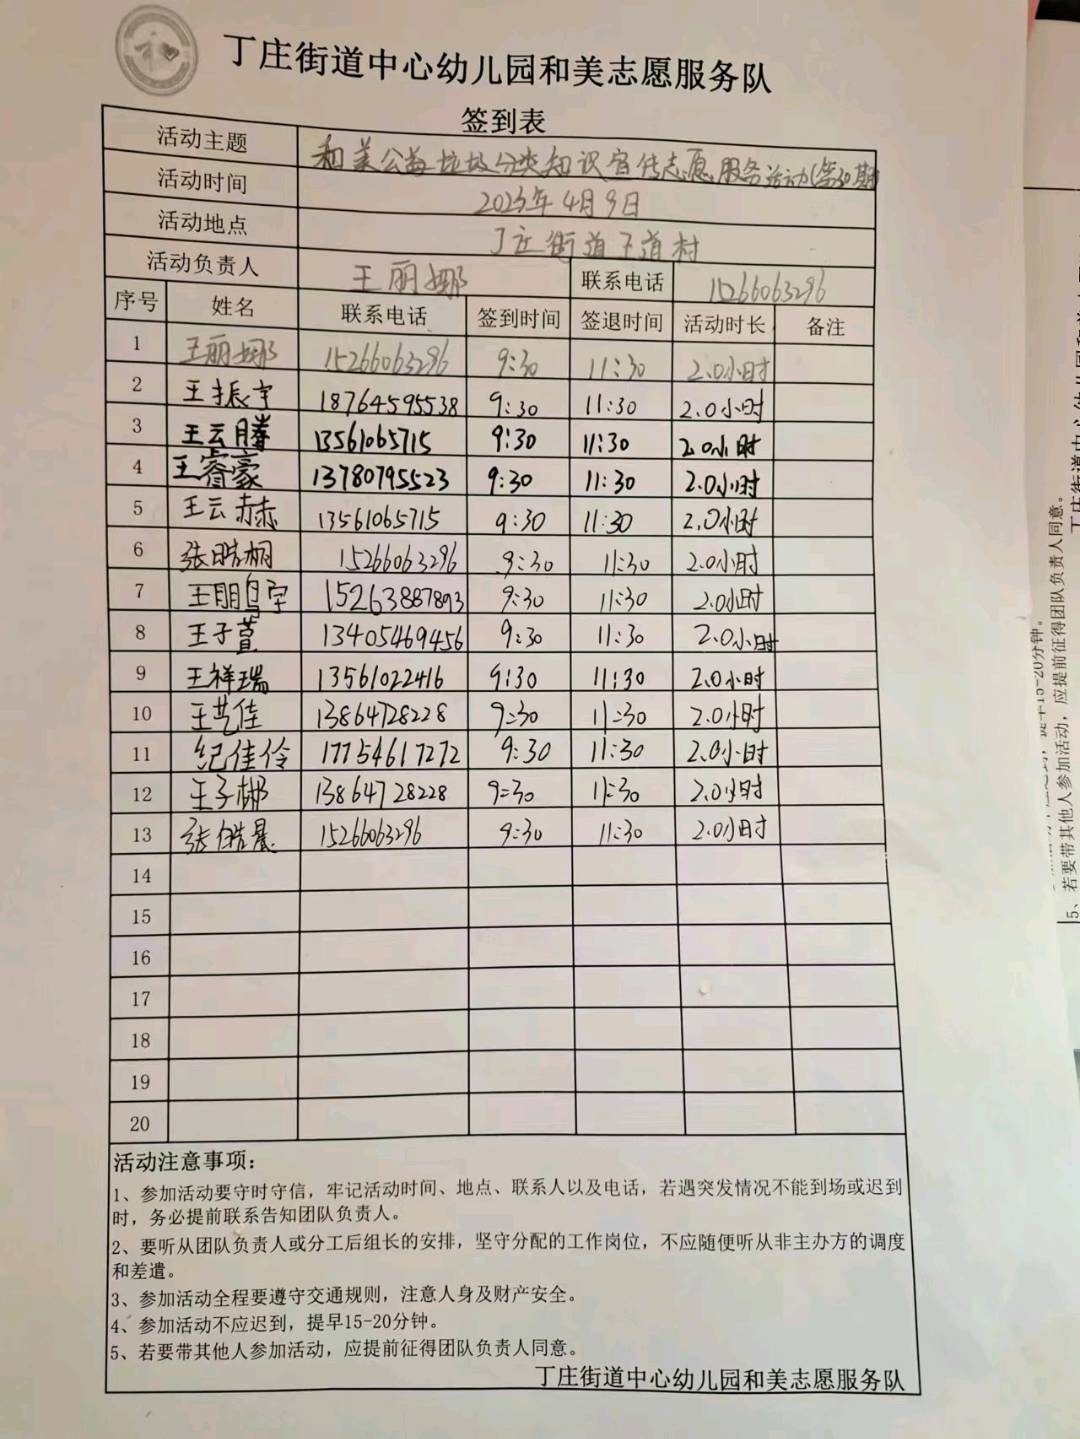 丁庄街道中心幼儿园和美志愿服务队
签到表
活动主题 和美公益垃圾分类知识宣传志愿服务活动(第30期)
活动时间 2023年4月9日
活动地点 丁庄街道王道村
活动负责人 王丽娜 联系电话 15266063296
序号 姓名 联系电话 签到时间 签退时间 活动时长 备注
1 王丽娜 15266063296 9:30 11:30 2.0小时
2 王振宇 18764595538 9:30 11:30 2.0小时
3 王云腾 13561065715 9:30 11:30 2.0小时
4 王睿豪 13780795523 9:30 11:30 2.0小时
5 王云赫 13561065715 9:30 11:30 2.0小时
6 张晧桐 15266063296 9:30 11:30 2.0小时
7 王鹏宇 15263887893 9:30 11:30 2.0小时
8 王子萱 13405469456 9:30 11:30 2.0小时
9 王祥瑞 13561022416 9:30 11:30 2.0小时
10 王艺佳 13864728228 9:30 11:30 2.0小时
11 纪佳伶 17754617272 9:30 11:30 2.0小时
12 王子郴 13864728228 9:30 11:30 2.0小时
13 张皓晨 15266063296 9:30 11:30 2.0小时
14
15
16
17
18
19
20
活动注意事项：
1、参加活动要守时守信，牢记活动时间、地点、联系人以及电话，若遇突发情况不能到场或迟到
时，务必提前联系告知团队负责人。
2、要听从团队负责人或分工后组长的安排，坚守分配的工作岗位，不应随便听从非主办方的调度
和差遣。
3、参加活动全程要遵守交通规则，注意人身及财产安全。
4、参加活动不应迟到，提早15-20分钟。
5、若要带其他人参加活动，应提前征得团队负责人同意。
丁庄街道中心幼儿园和美志愿服务队
5、若要带其他人参加活动，应提前征得团队负责人同意。